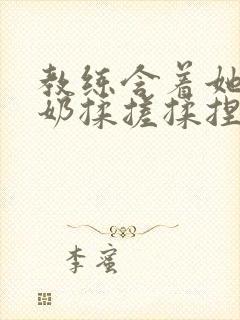 教练含着她
奶揉搓揉捏
李蜜